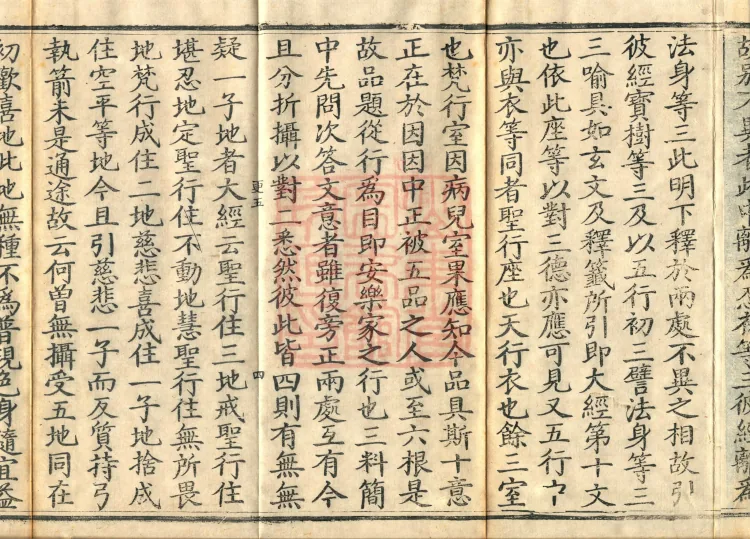 故別不異者此中離
法身等三此明下釋於兩處不異之相故引
彼經寶樹等三及以五行初三譬法身等三
三喻具如玄文及釋籤所引即大經第十文
也依此座等以對三德亦應可見又五行中
亦與衣等同者聖行座也天行衣也餘三室
也梵行室因病兒室果應知今品具斯十意
正在於因因中正被五品之人或至六根是
故品題從行為目即安樂家之行也三料簡
中先問次答文意者雖復旁正兩處互有今
且分折攝以對二悉然彼此皆四則有無無
更五
四
疑一子地者大經云聖行住三地戒聖行住
堪忍地定聖行住不動地慧聖行住無所畏
地梵行成住二地慈悲喜成住一子地捨成
住空平等地今且引慈悲一子而反質持弓
執箭未是通途故云何曾無攝受五地同在
初歡喜地此地無種不為普現色身隨宜益